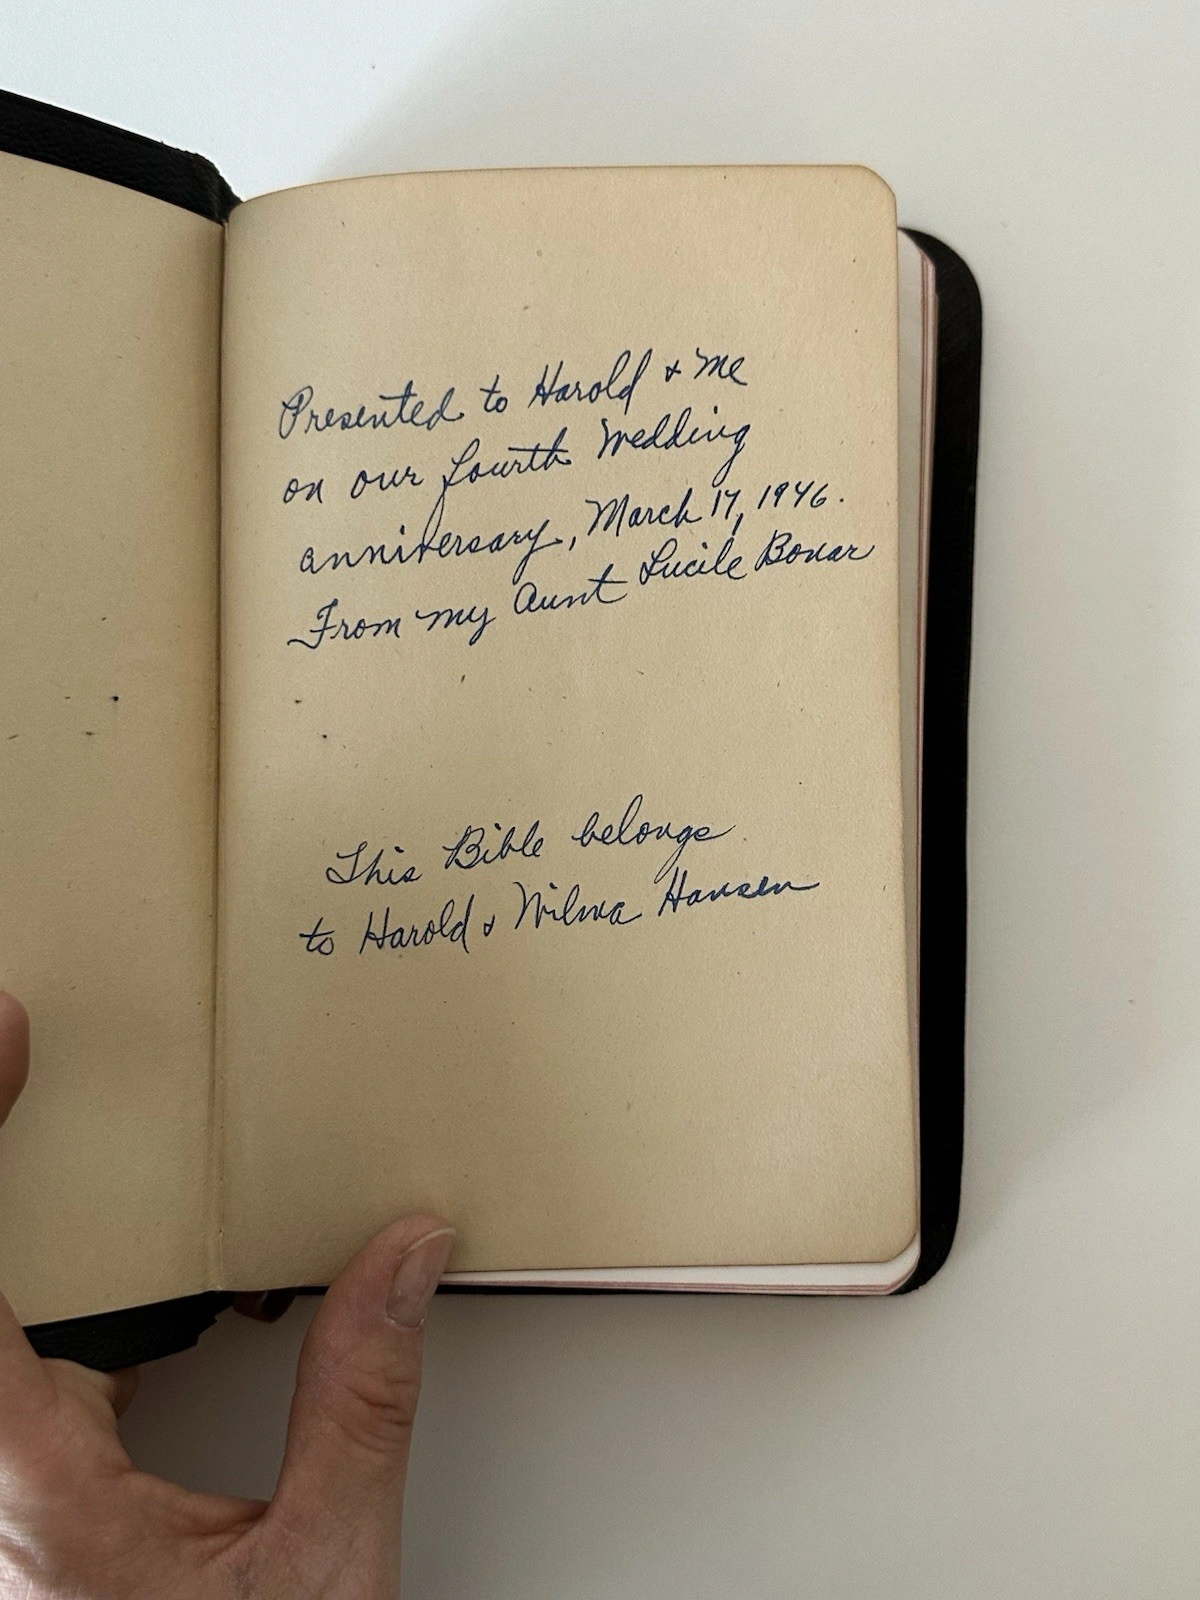 Presented to Harold & me
on our fourth Wedding
anniversary, March 17, 1946.
From my Aunt Lucile Bonar
This Bible belongs
to Harold & Wilma Hansen